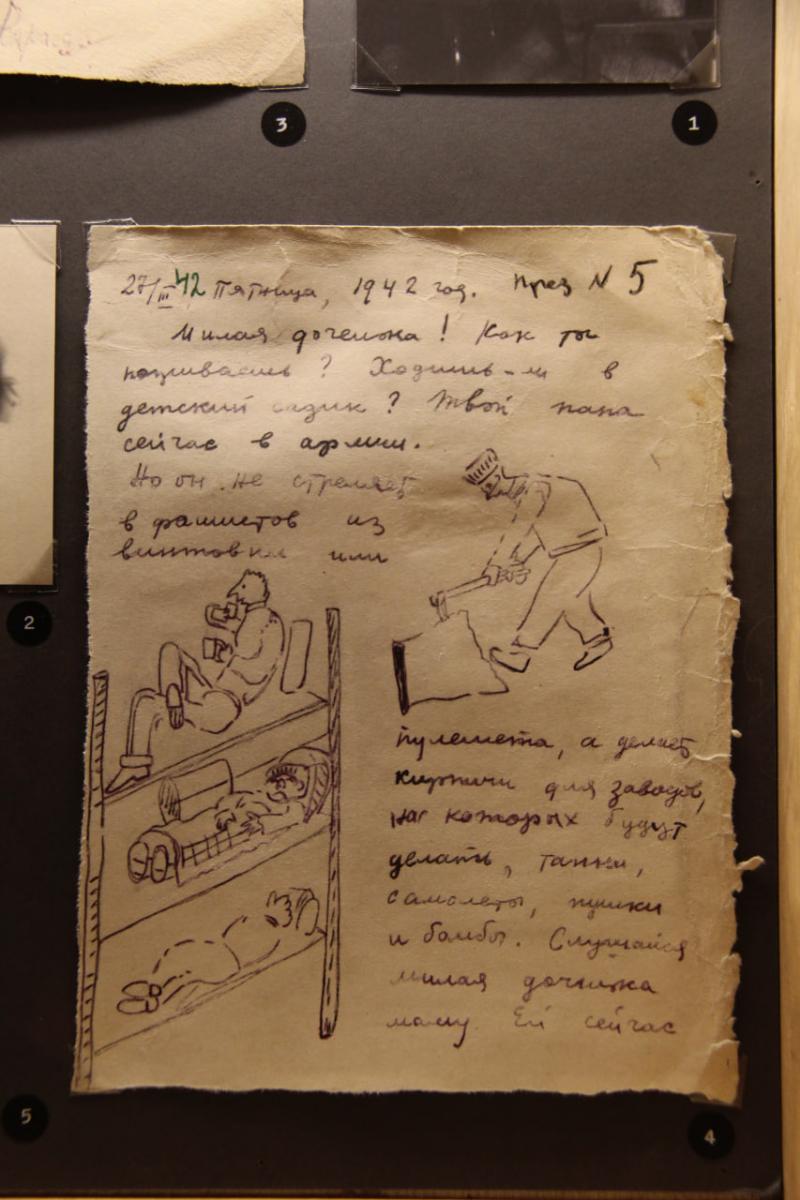 3
1
27/III 42 Пятница, 1942 год. През N 5
Милая доченька! Как ты
поживаешь? Ходишь-ли в
детский садик? Твой папа
сейчас в армии.
Но он не стреляет
в фашистов из
винтовки или
пулемета, а делает
кирпичи для заводов,
на которых будут
делать, танки,
самолеты, пушки
и бомбы. Слушайся
милая дочинька
маму. Ей сейчас
2
5
4